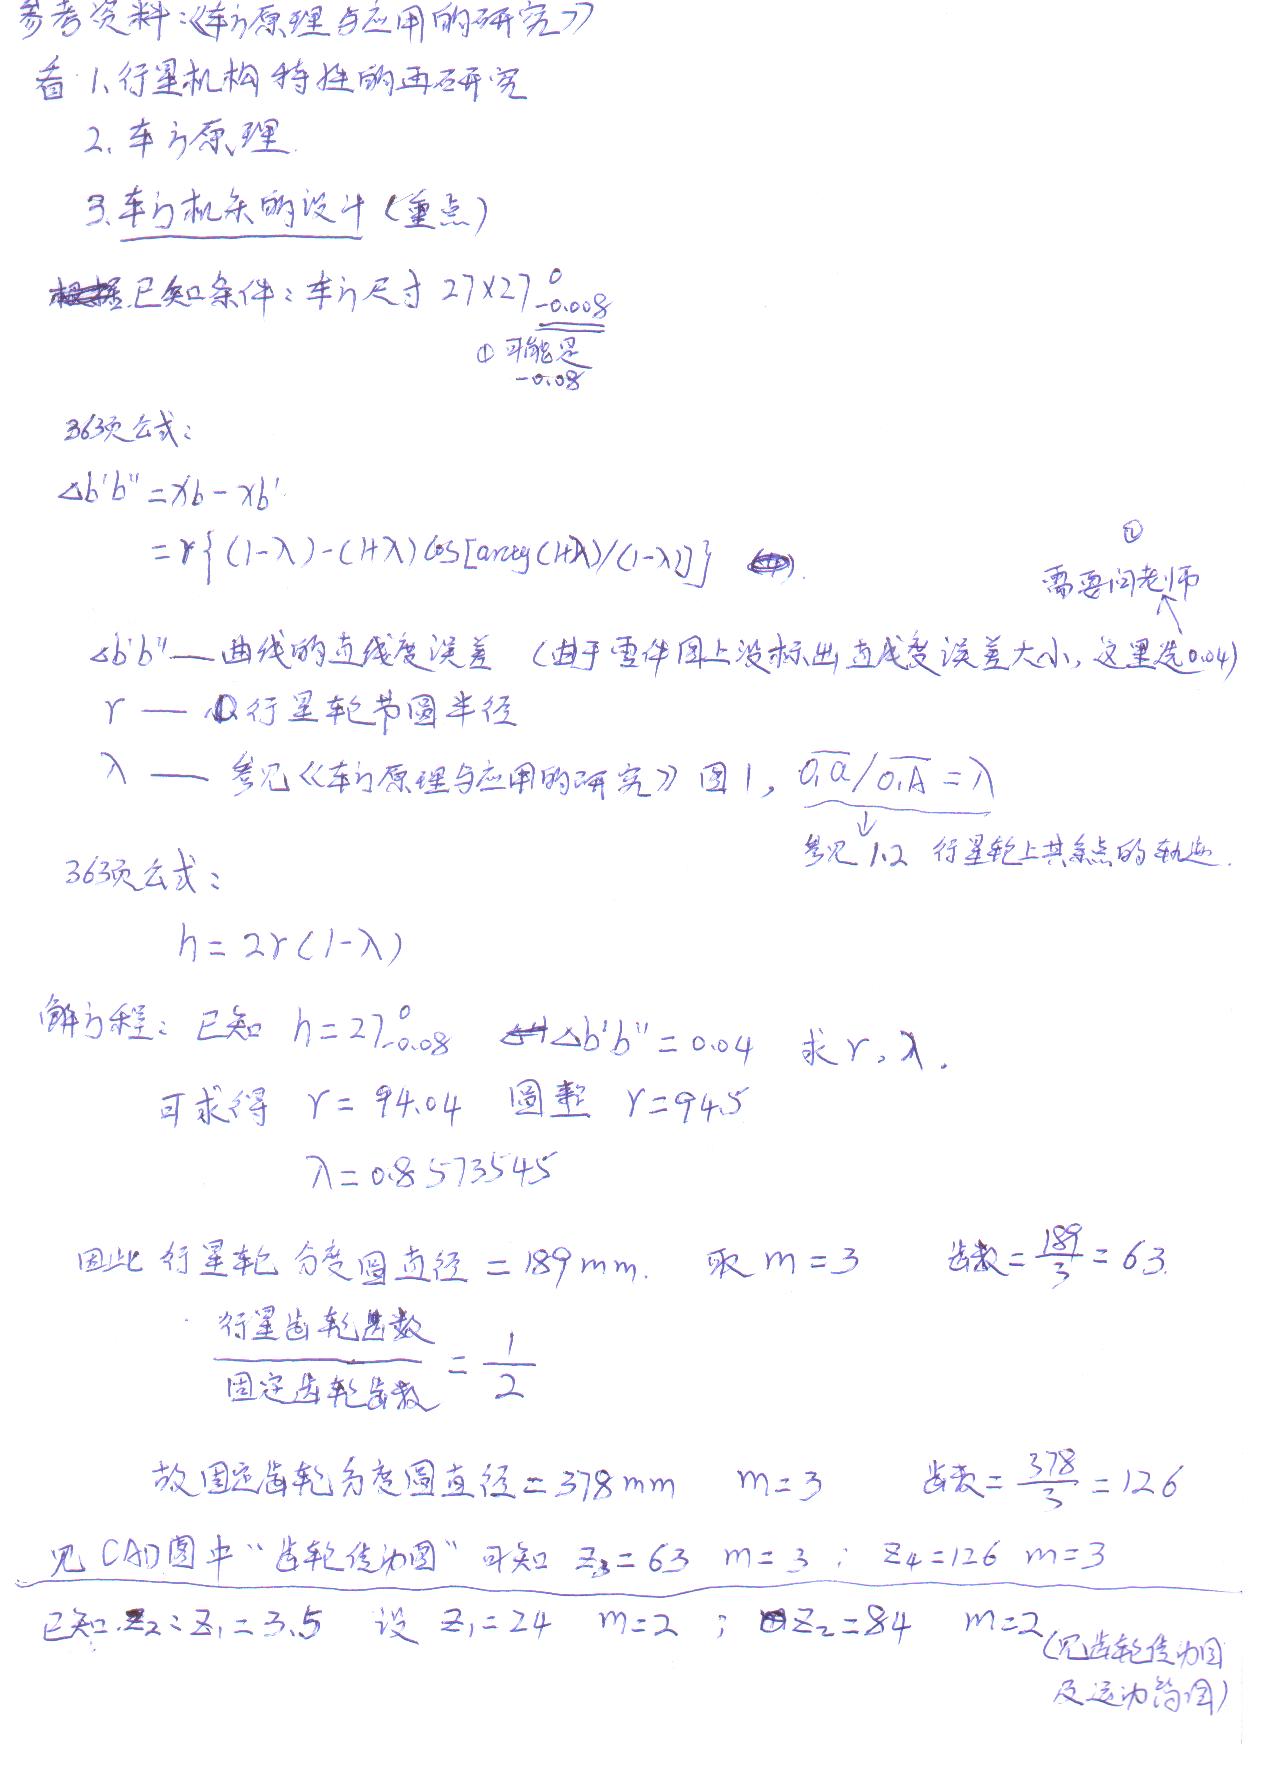 参考资料:《车方原理与应用的研究》
看 1、行星机构特性的再研究
2、车方原理
3、车方机条的设计(重点)
已知条件:车方尺寸 27×27 0 -0.008
① 可能是
-0.08
363页公式:
△b'b''=xb-xb'
=r{(1-λ)-(1+λ)cos[arctg(1+λ)/(1-λ)]}
②
需要问老师
△b'b''—曲线的直线度误差 (由于零件图上没标出直线度误差大小,这里选0.04)
r — 行星轮节圆半径
λ — 参见《车方原理与应用的研究》图1, O₁a/O₁A=λ
参见 1.2 行星轮上共系点的轨迹.
363页公式:
h=2r(1-λ)
解方程: 已知 h=27 0 -0.08 △b'b''=0.04 求r,λ.
可求得 r=94.04 圆整 r=94.5
λ=0.8573545
因此 行星轮 分度圆直径=189mm. 取 m=3 齿数=189/3=63.
行星齿轮齿数/固定齿轮齿数=1/2
故固定齿轮分度圆直径=378mm m=3 齿数=378/3=126
见CAD图中“齿轮传动图”可知 z₃=63 m=3 ; z₄=126 m=3
已知 z₂:z₁=3.5 设 z₁=24 m=2 ; z₂=84 m=2
(见齿轮传动图
及运动简图)